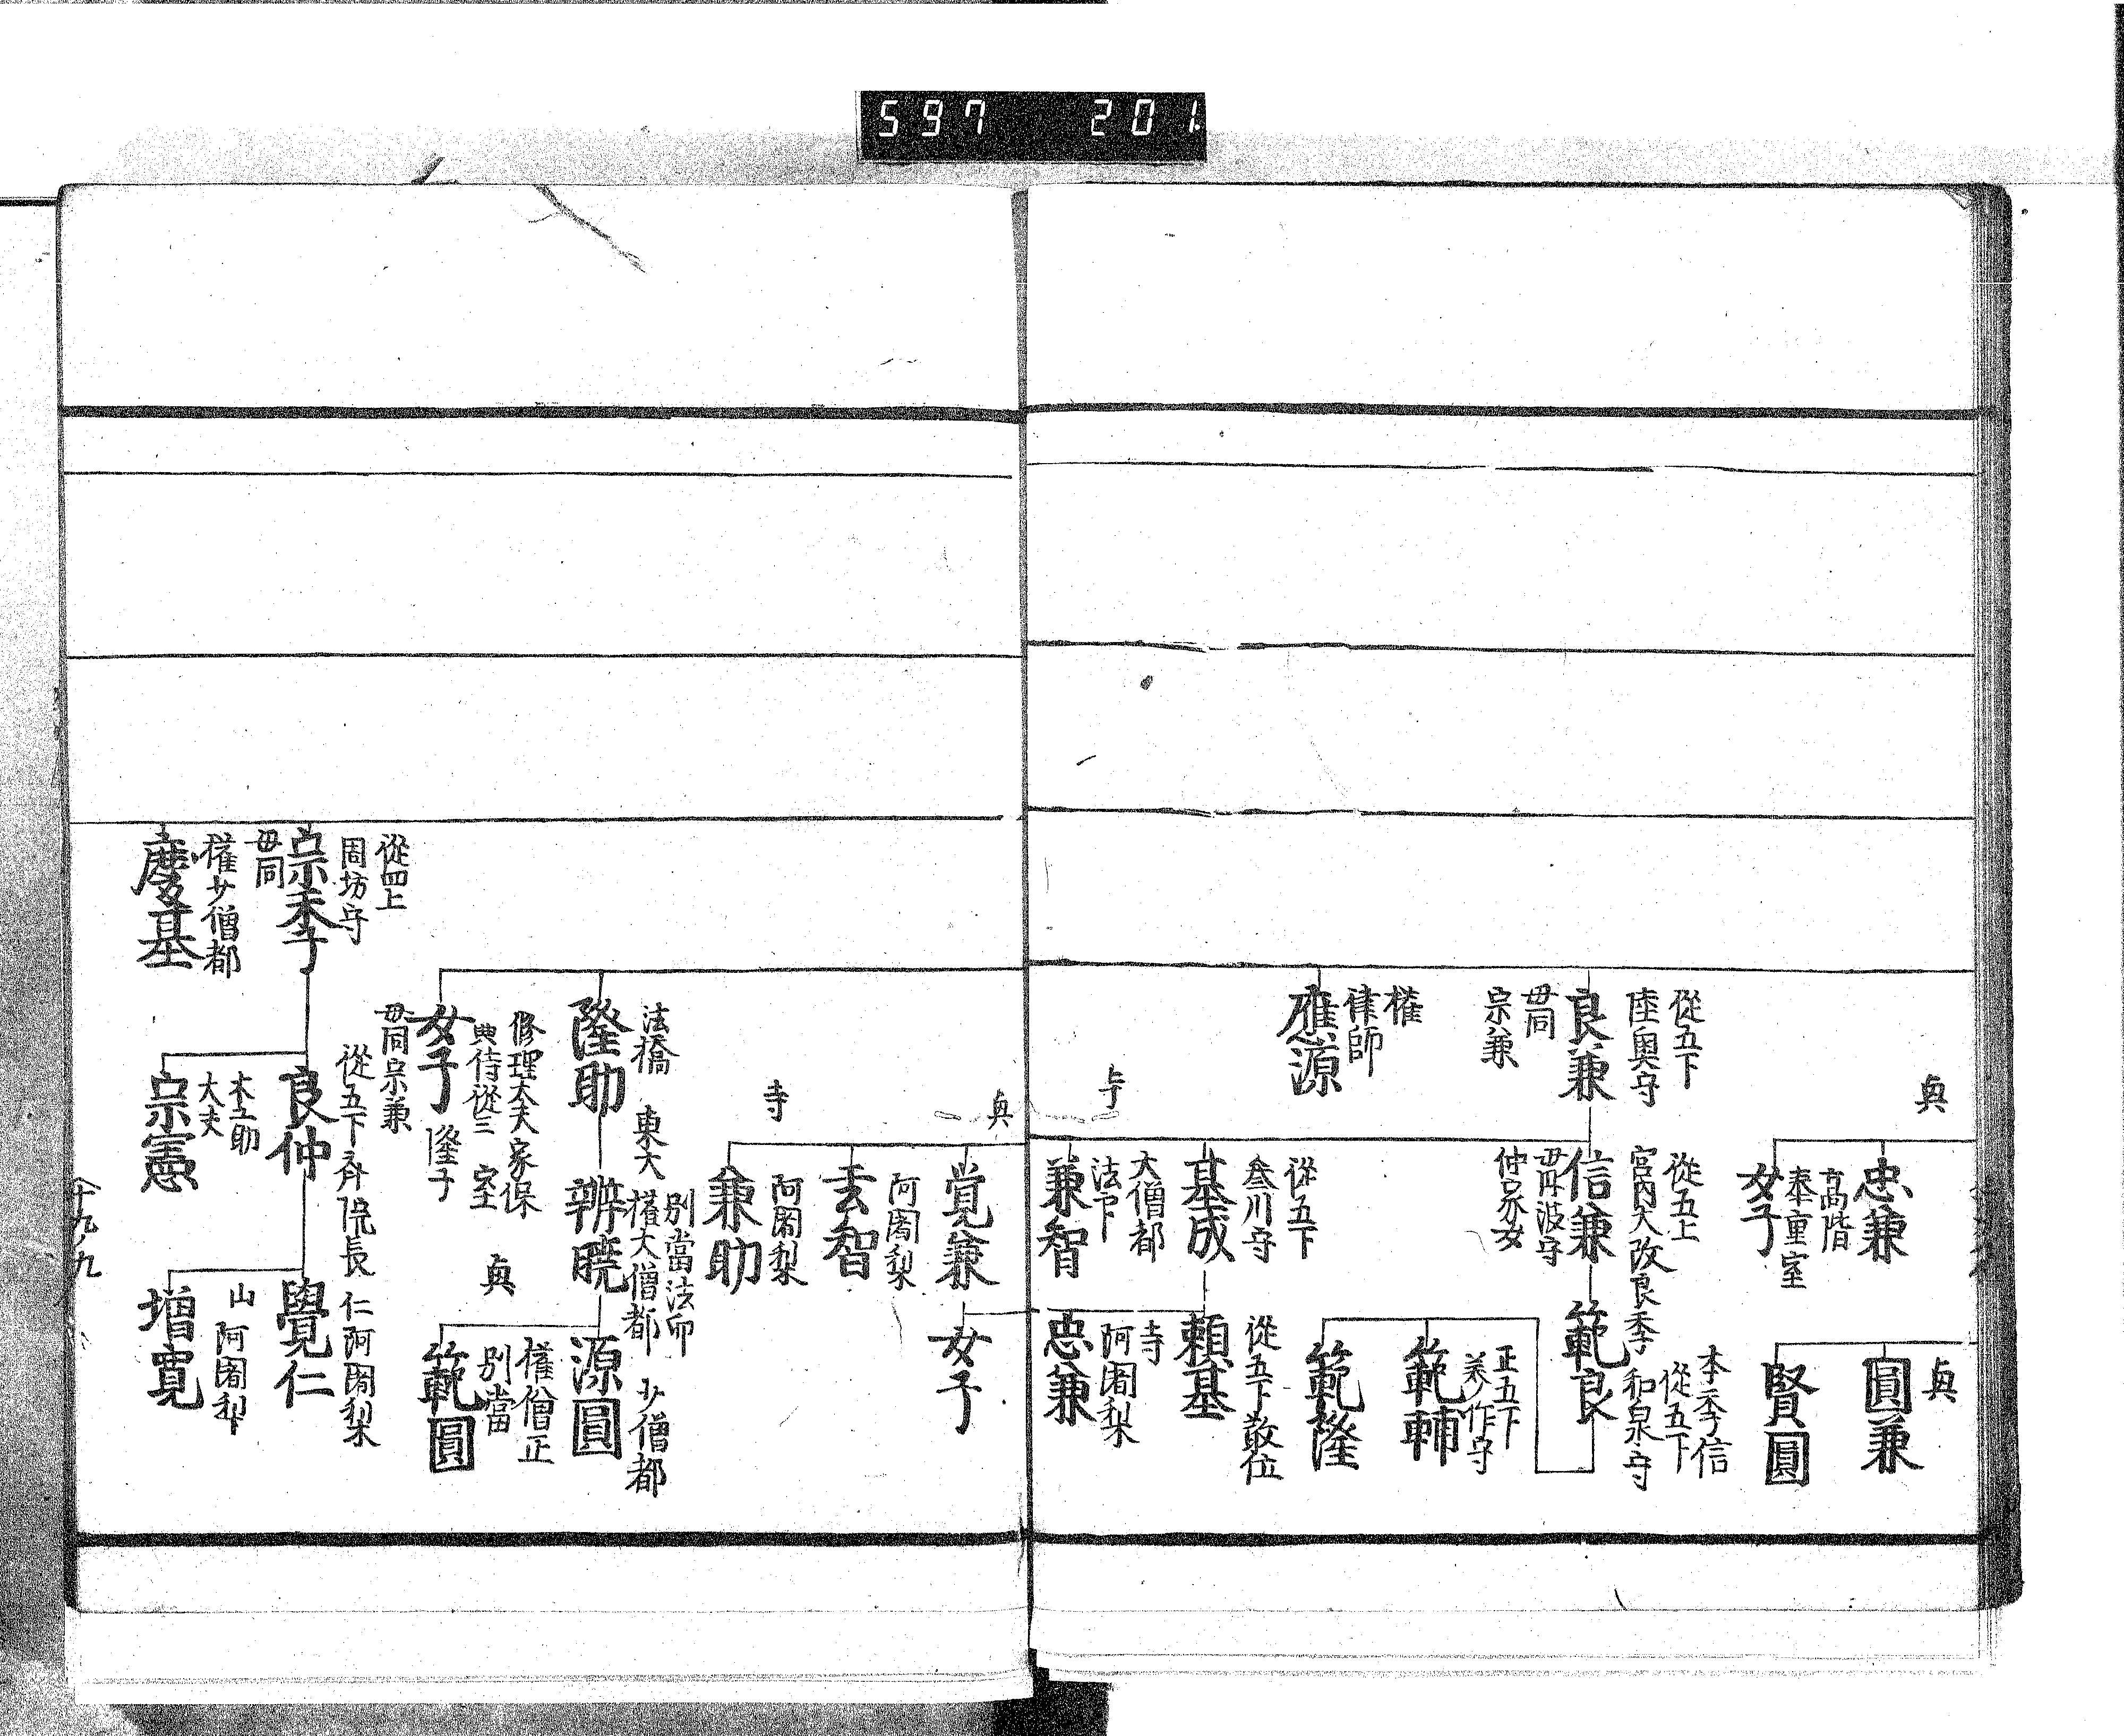 597 201
忠兼
高階
奉重室
女子
圓兼
賢圓
從五下
陸奥守
良兼
母同
宗兼
從五上
宮内大改良季
信兼
母丹波守
仲家女
本季信
從五下
和泉守
範良
正五下
美作守
範輔
範隆
權
律師
應源
從五下
叄川守
基成
從五下散位
頼基
大僧都
法下
兼智
寺
阿闍梨
忠兼
覚兼
女子
阿闍梨
玄智
寺
阿闍梨
兼助
法橋
隆助
東大
別當法印
權大僧都
辨暁
少僧都
源圓
權僧正
別當
範圓
修理大夫家保
室
典侍從三
女子
隆子
母同宗兼
從四上
周坊守
宗季
母同
權少僧都
慶基
從五下斉院長
良仲
木工助
大夫
宗憲
仁阿闍梨
覺仁
山
阿闍梨
増寛
十九ノ九